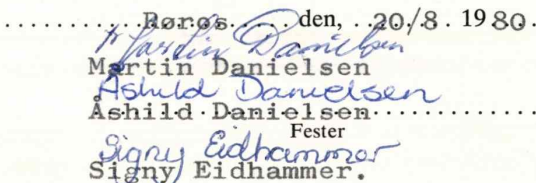 ......Røros......den, ..20/8. 1980.
Martin Danielsen
Martin Danielsen
Åshild Danielsen
Åshild.Danielsen...............
Fester
Signy Eidhammer
Signy Eidhammer.